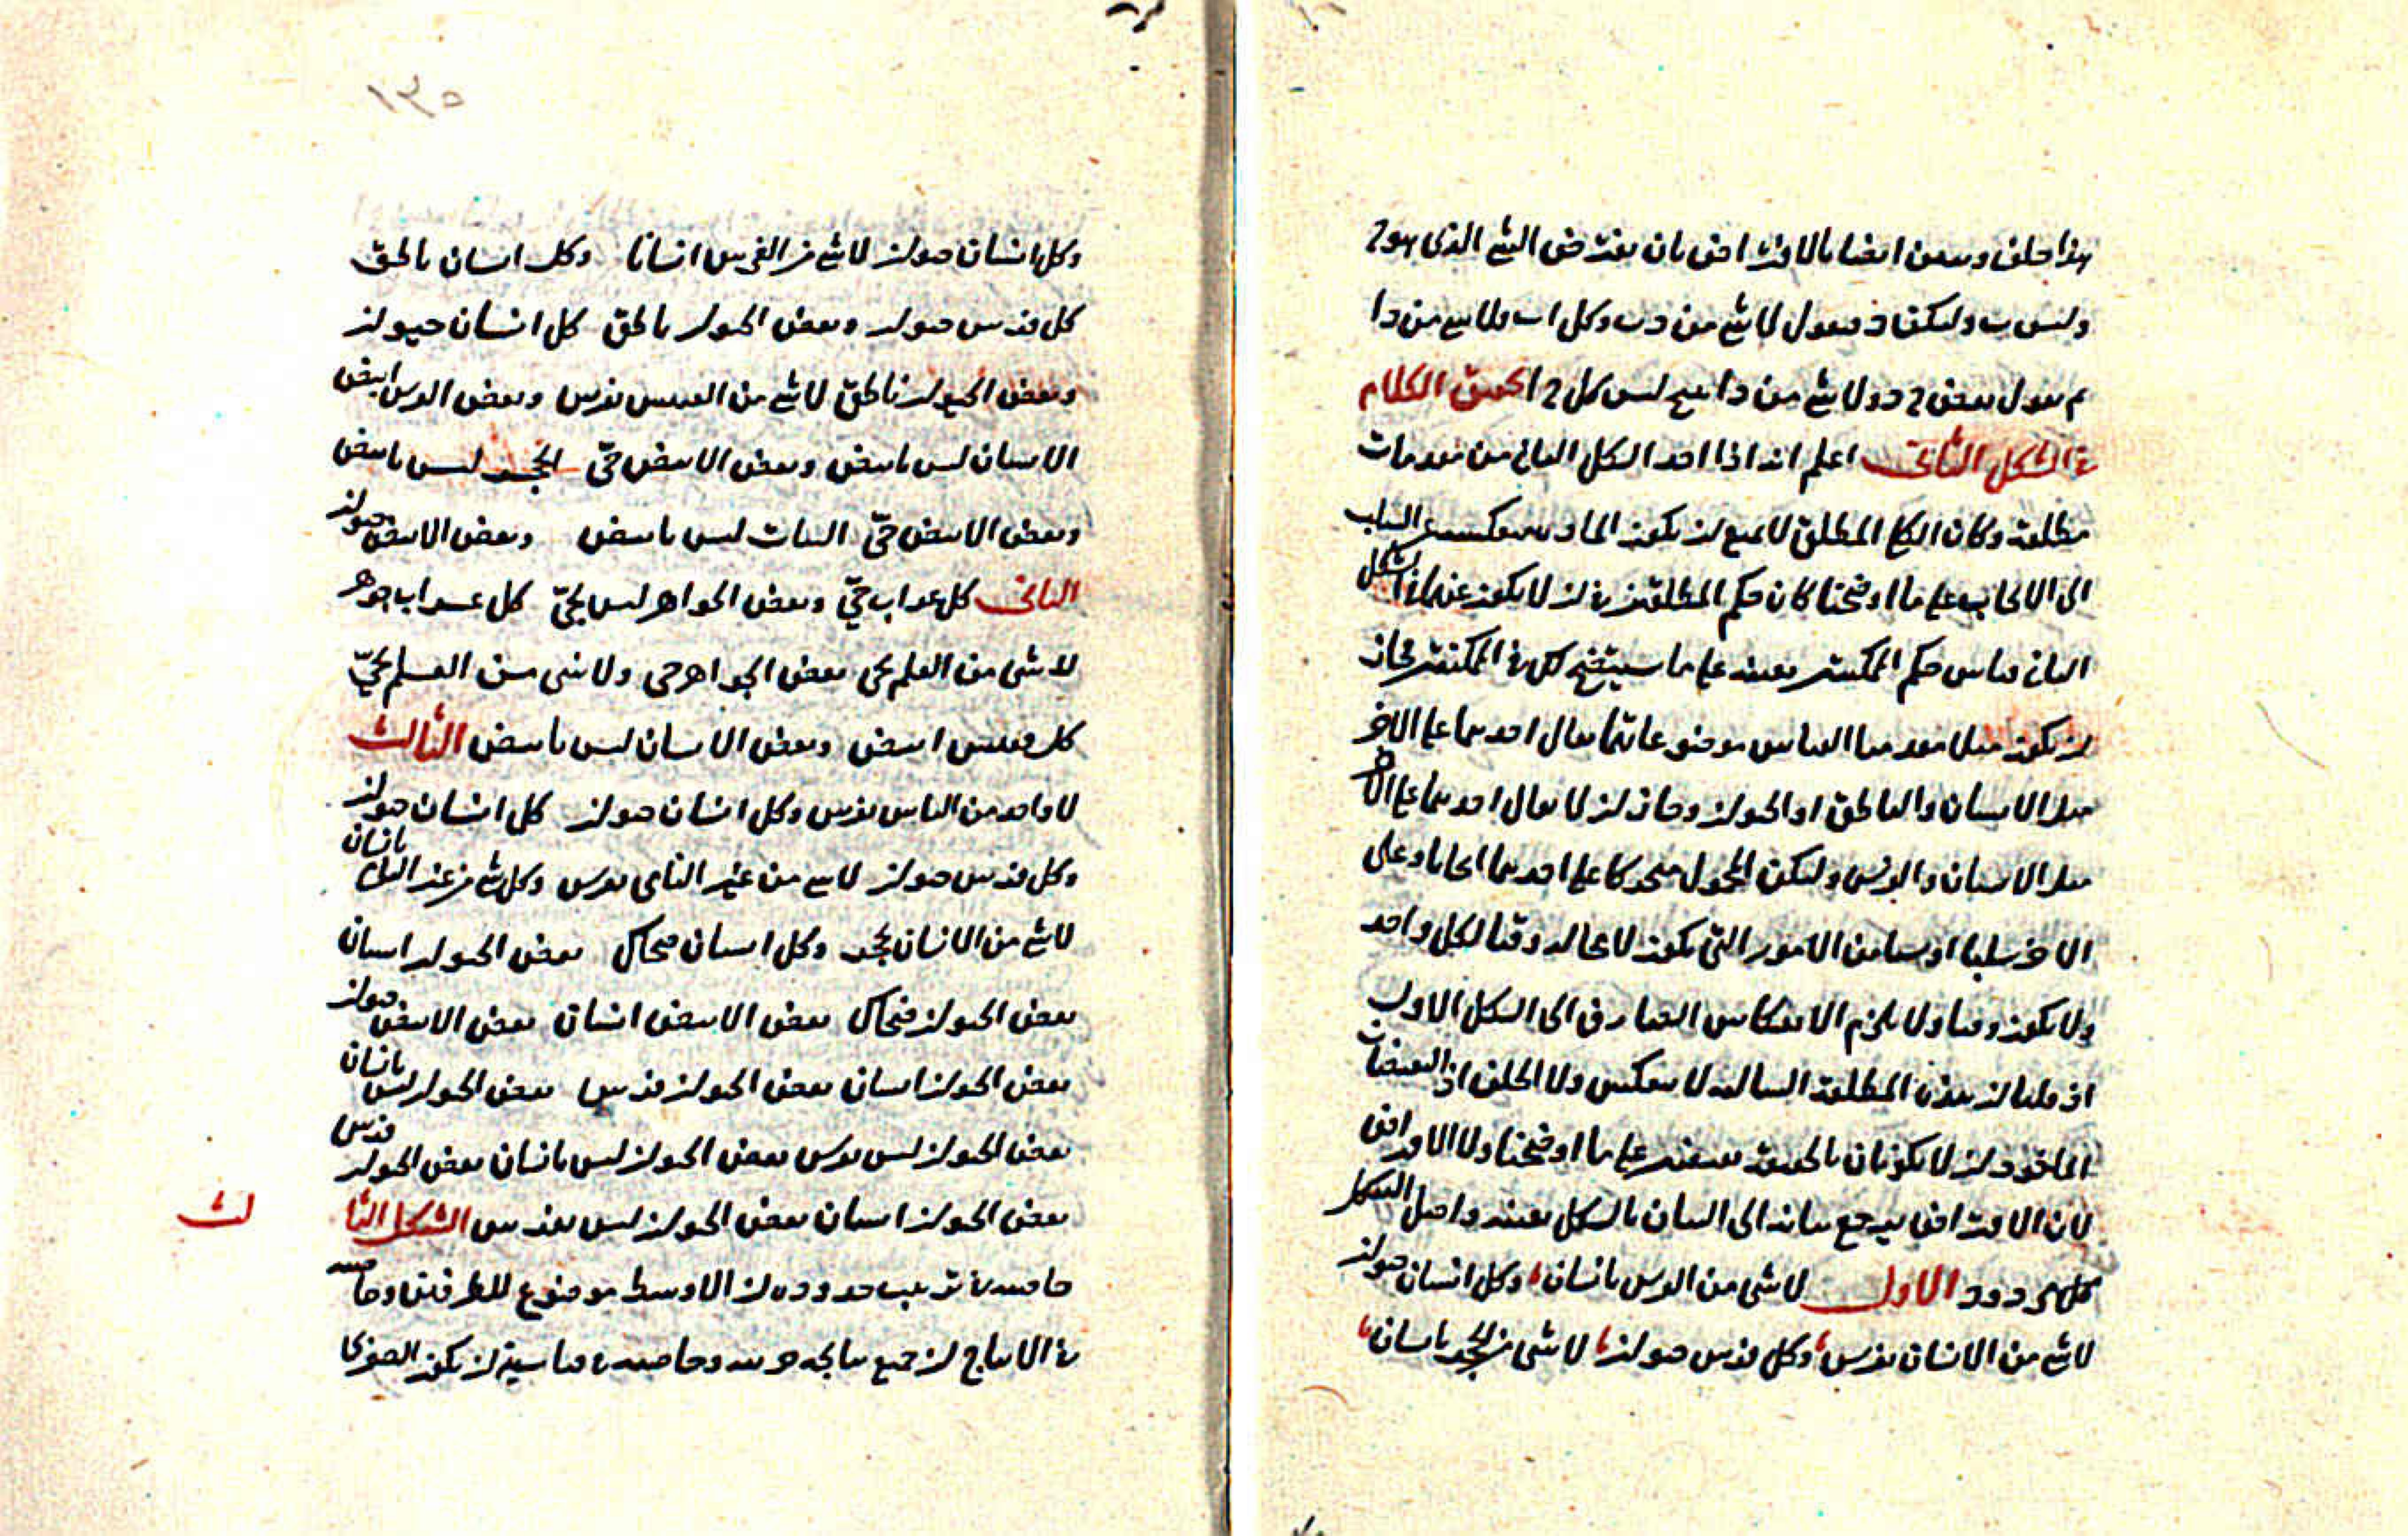 هذا خلف ونبين ايضا بالافتراض بان نفترض الشي الذي هو ج
وليس ب وليكن د فنقول لا شي من د ب وكل ا ب فلا شي من د ا
ثم نقول بعض ج د ولا شي من د ا ينتج ليس كل ج ا تحقيق الكلام
في الشكل الثاني اعلم انه اذا اخذ الشكل الثاني من مقدمات
مطلقة وكان الكلي المطلق لا يمنع ان يكون المادة ينعكس من السلب
الى الايجاب على ما اوضحنا كان حكم المطلقتين في ان لا يكون عنهما في الشكل
الثاني قياس حكم الممكنتين بعينه على ما سيتضح لك في الممكنتين فجاز
ان يكون مثلا مقدمتا القياس موضوعاتهما يقال احدهما على الاخر
مثل الانسان والناطق او الحيوان وجاز ان لا يقال احدهما على الاخر
مثل الانسان والفرس وليكن المحمول متحركا على احدهما ايجابا وعلى
الاخر سلبا او شيا من الامور التي يكون لا محالة وقتا لكل واحد
ولا يكون وقتا ولا يلزم الانعكاس الصارف الى الشكل الاول
اذ قلنا ان هذه المطلقة السالبة لا ينعكس ولا الخلف اذ النقيضان
الماخوذان لا يكونان بالحقيقة نقيضين على ما اوضحنا ولا الافتراض
لان الافتراض يرجع بيانه الى البيان بالشكل بعينه واصل الشكل
حدود الاول لا شي من الفرس بانسان وكل انسان حيوان
لا شي من الانسان بفرس وكل فرس حيوان لا شي من الحجر بانسان
١٣٥
وكل انسان حيوان لا شي من الفرس انسانا وكل انسان ناطق
كل فرس حيوان وبعض الحيوان ناطق كل انسان حيوان
وبعض الحيوان ناطق لا شي من الققنس بفرس وبعض الفرس ابيض
الانسان ليس بابيض وبعض الابيض حي الحجر ليس بابيض
وبعض الابيض حي النبات ليس بابيض وبعض الابيض حيوان
الثاني كل غراب حي وبعض الجواهر ليس بحي كل غراب جوهر
لا شي من العلم بحي بعض الجواهر حي ولا شي من العلم بحي
كل ققنس ابيض وبعض الانسان ليس بابيض الثالث
لا واحد من الناس بفرس وكل انسان حيوان كل انسان حيوان
وكل فرس حيوان لا شي من غير الناس بفرس وكل شي من غير الناس بانسان
لا شي من الانسان بحجر وكل انسان ضحاك بعض الحيوان انسان
بعض الحيوان ضحاك بعض الابيض انسان بعض الابيض حيوان
بعض الحيوان انسان بعض الحيوان فرس بعض الحيوان ليس بانسان
بعض الحيوان ليس بفرس بعض الحيوان ليس بانسان بعض الحيوان فرس
بعض الحيوان انسان بعض الحيوان ليس بفرس الشكل الثا
لث
خاصيته في ترتيب حدوده ان الاوسط موضوع للطرفين وخاصيته
في الانتاج ان جميع نتايجه جزئية وخاصيته في قياسيته ان يكون الصغرى